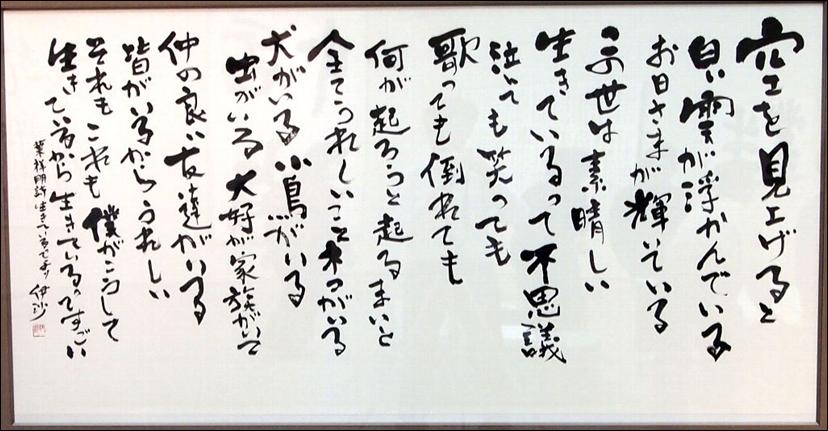 空を見上げると
白い雲が浮かんでいる
お日さまが輝いている
この世は素晴しい
生きているって不思議
泣いても笑っても
歌っても倒れても
何が起ろうと起るまいと
全てうれしいこと木々がいる
犬がいる小鳥がいる
虫がいる大好が家族がいて
仲の良い友達がいる
皆がいるからうれしい
それもこれも僕がこうして
生きているから生きているってすごい
葉祥明詩 生きているですヲ 伊沙